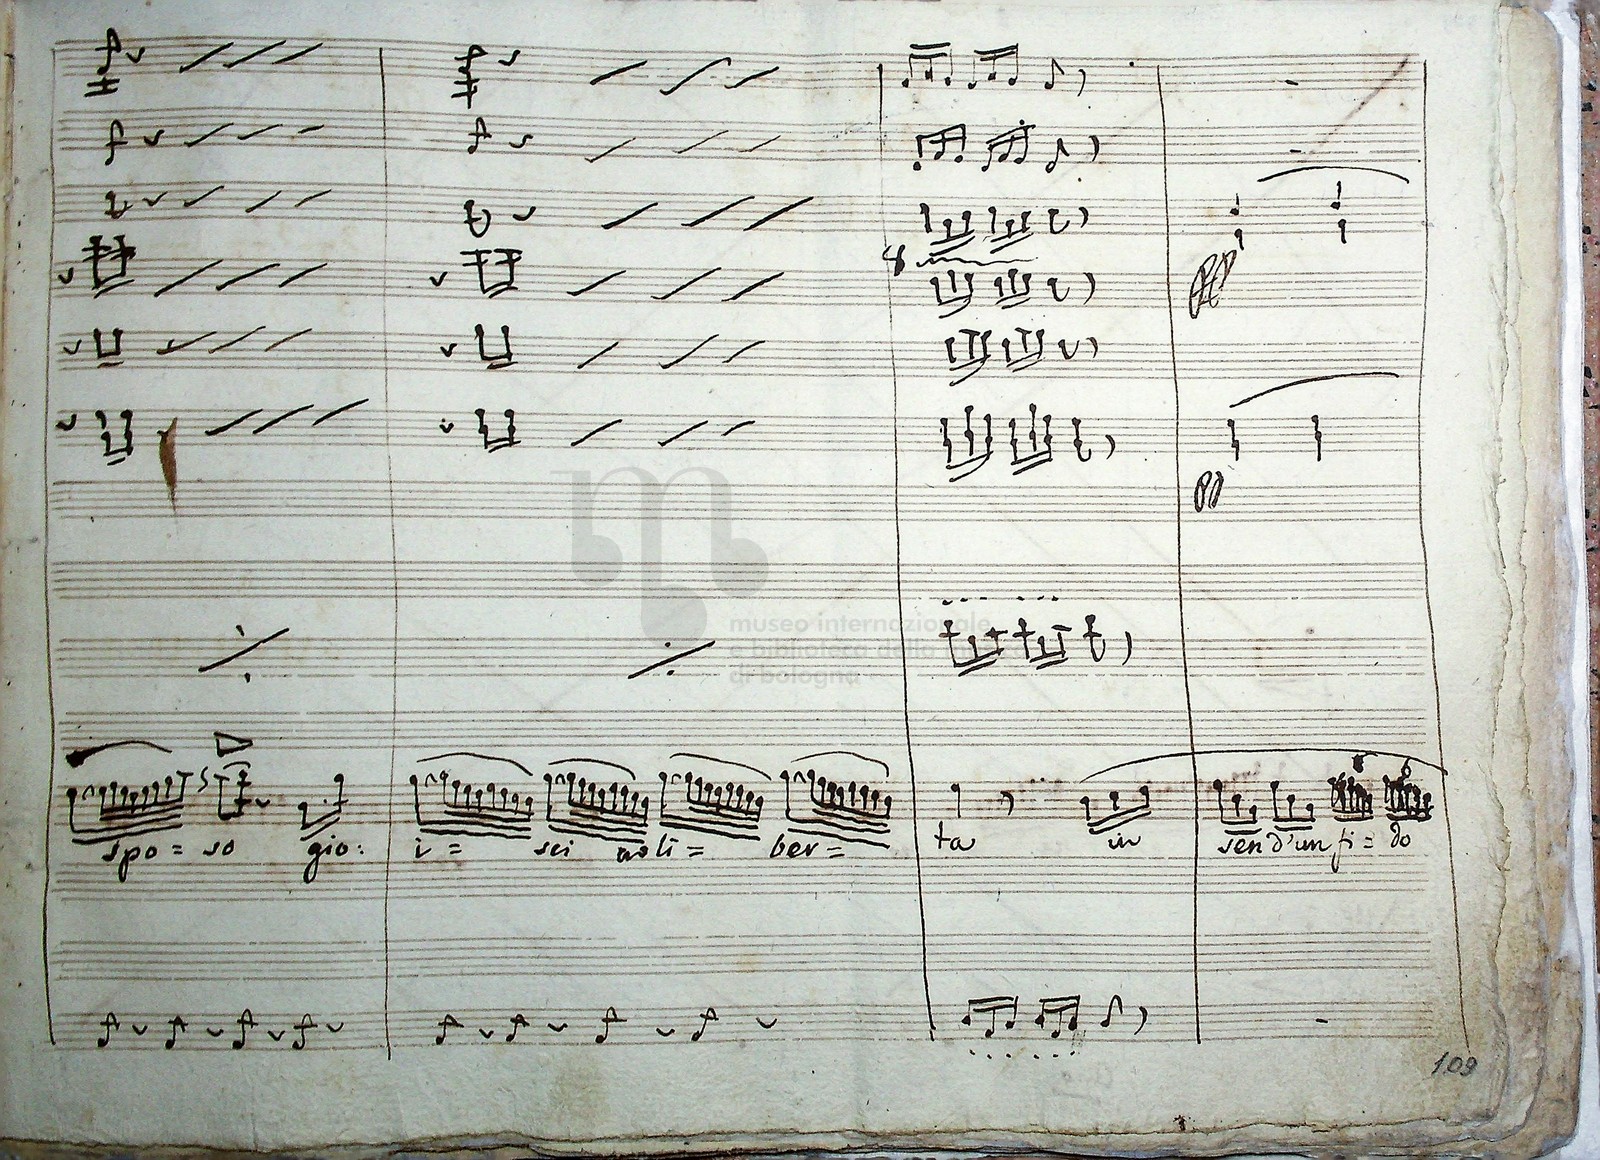 8
pp
pp
museo internazionale
e biblioteca della musica
di bologna
6
spo = so gio: i = sci ber = ta in sen d'un fi = do
109